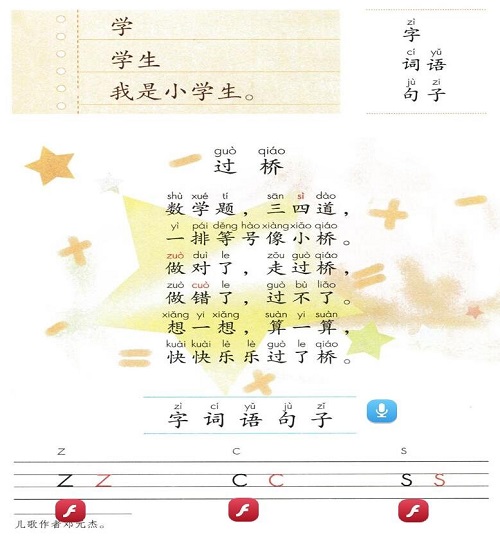 学
学生
我是小学生。
zì
字
cí yǔ
词语
jù zǐ
句子
guò qiáo
过桥
shù xué tí sān sì dào
数学题，三四道，
yì pái děng hào xiàng xiǎo qiáo
一排等号像小桥。
zuò duì le zǒu guò qiáo
做对了，走过桥，
zuò cuò le guò bù liǎo
做错了，过不了。
xiǎng yi xiǎng suàn yi suàn
想一想，算一算，
kuài kuài lè lè guò le qiáo
快快乐乐过了桥。
zì cí yǔ jù zǐ
字词语句子
z c s
z z c c s s
儿歌作者邓元杰。